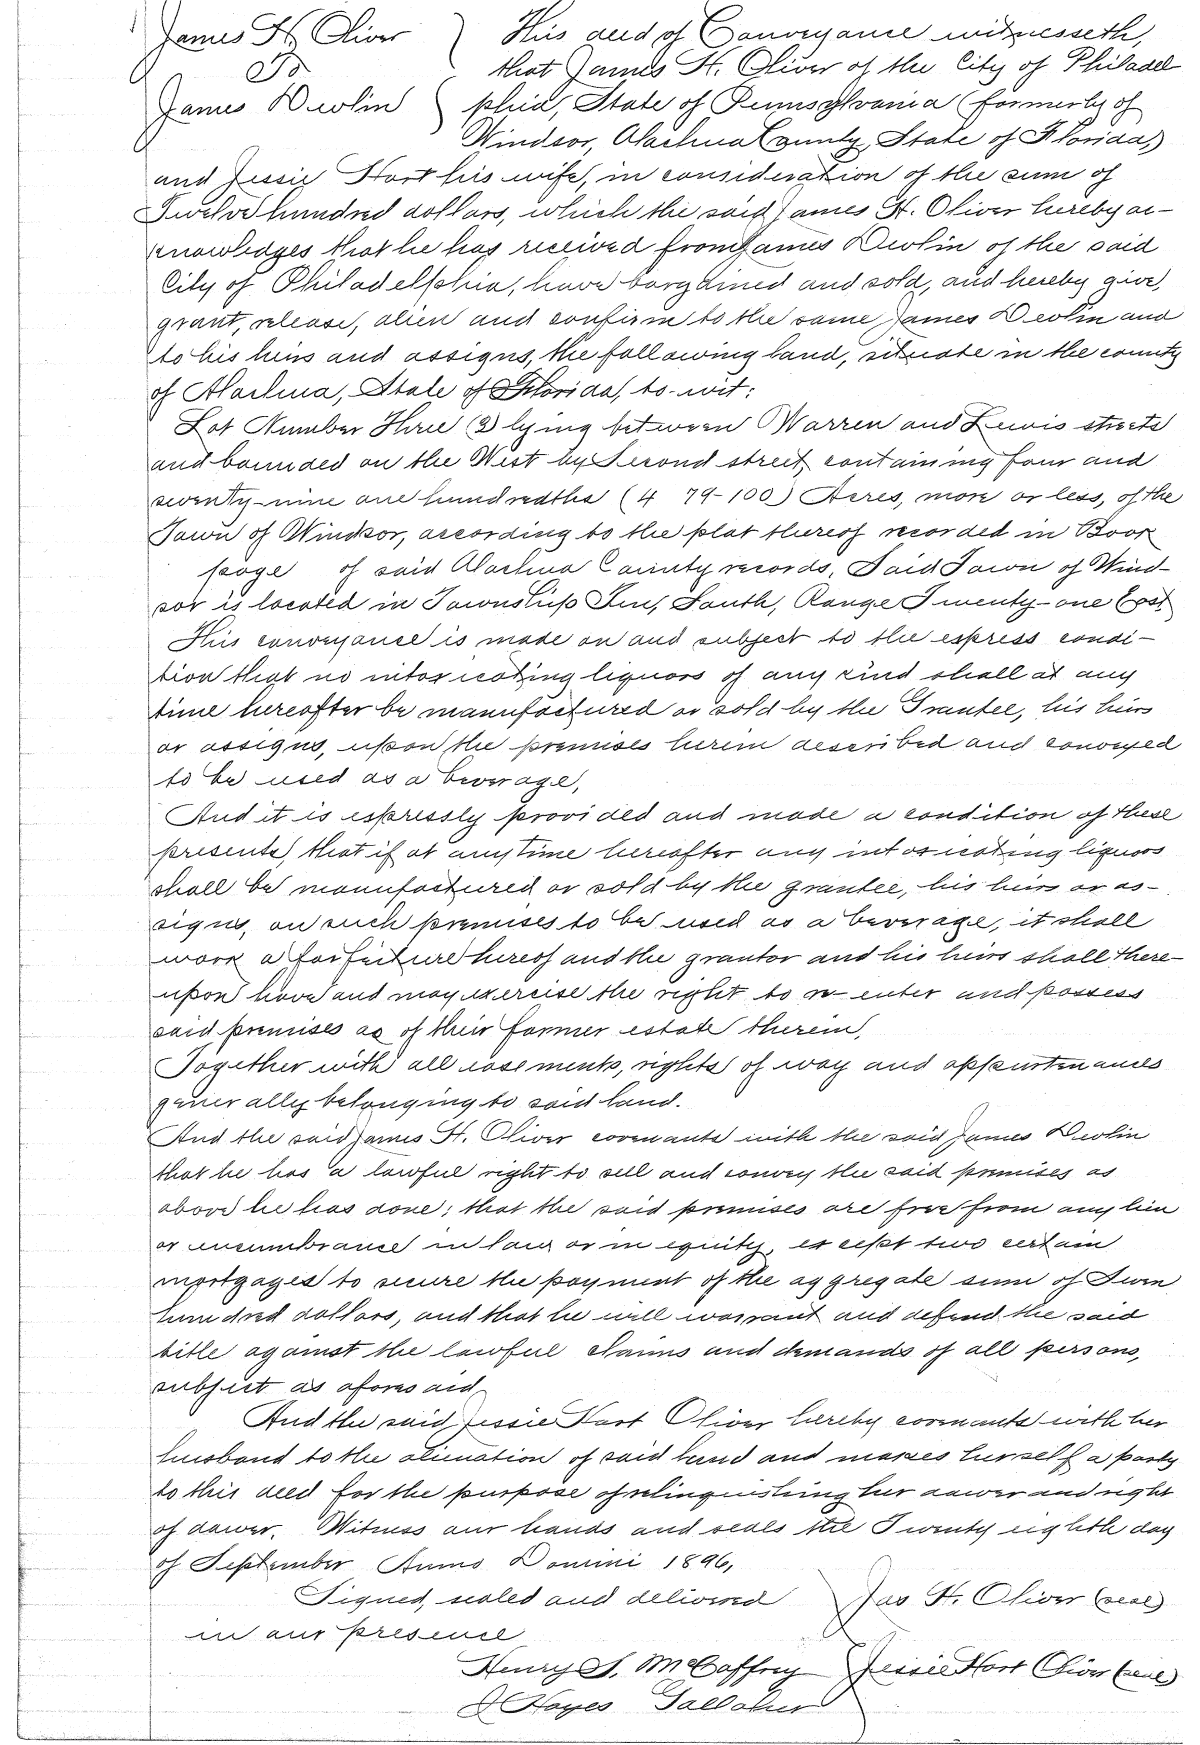 James H. Oliver This deed of Conveyance witnesseth,
To that James H. Oliver of the City of Philadel
James Devlin phia, State of Pennsylvania (formerly of
Windsor, Alachua County, State of Florida,)
and Jessie Hart his wife, in consideration of the sum of
Twelve hundred dollars, which the said James H. Oliver hereby ac-
knowledges that he has received from James Devlin of the said
City of Philadelphia, have bargained and sold, and hereby give,
grant, release, alien and confirm to the same James Devlin and
to his heirs and assigns, the following land, situate in the county
of Alachua, State of Florida, to-wit:
Lot Number Three (3) lying between Warren and Lewis streets
and bounded on the West by Second street, containing four and
seventy-nine one hundredths (4 79-100) Acres, more or less, of the
Town of Windsor, according to the plat thereof recorded in Book
page of said Alachua County records, Said Town of Wind-
sor is located in Township Ten, South, Range Twenty-one East,
This conveyance is made on and subject to the express condi-
tion that no intoxicating liquors of any kind shall at any
time hereafter be manufactured or sold by the Grantee, his heirs
or assigns, upon the premises herein described and conveyed
to be used as a beverage,
And it is expressly provided and made a condition of these
presents, that if at any time hereafter any intoxicating liquors
shall be manufactured or sold by the grantee, his heirs or as-
signs, on such premises to be used as a beverage, it shall
work a forfeiture hereof and the grantor and his heirs shall there-
upon have and may exercise the right to re-enter and possess
said premises as of their former estate therein,
Together with all easements, rights of way and appurtenances
generally belonging to said land.
And the said James H. Oliver covenants with the said James Devlin
that he has a lawful right to sell and convey the said premises as
above he has done; that the said premises are free from any lien
or encumbrance in law or in equity, except two certain
mortgages to secure the payment of the aggregate sum of Seven
hundred dollars, and that he will warrant and defend the said
title against the lawful claims and demands of all persons,
subject as aforesaid
And the said Jessie Hart Oliver hereby covenants with her
husband to the alienation of said land and makes herself a party
to this deed for the purpose of relinquishing her dower and right
of dower. Witness our hands and seals the Twenty eighth day
of September Anno Domini 1896,
Signed, sealed and delivered Jas H. Oliver (seal)
in our presence
Henry S. McCaffrey Jessie Hart Oliver (seal)
J Hayes Gallaher